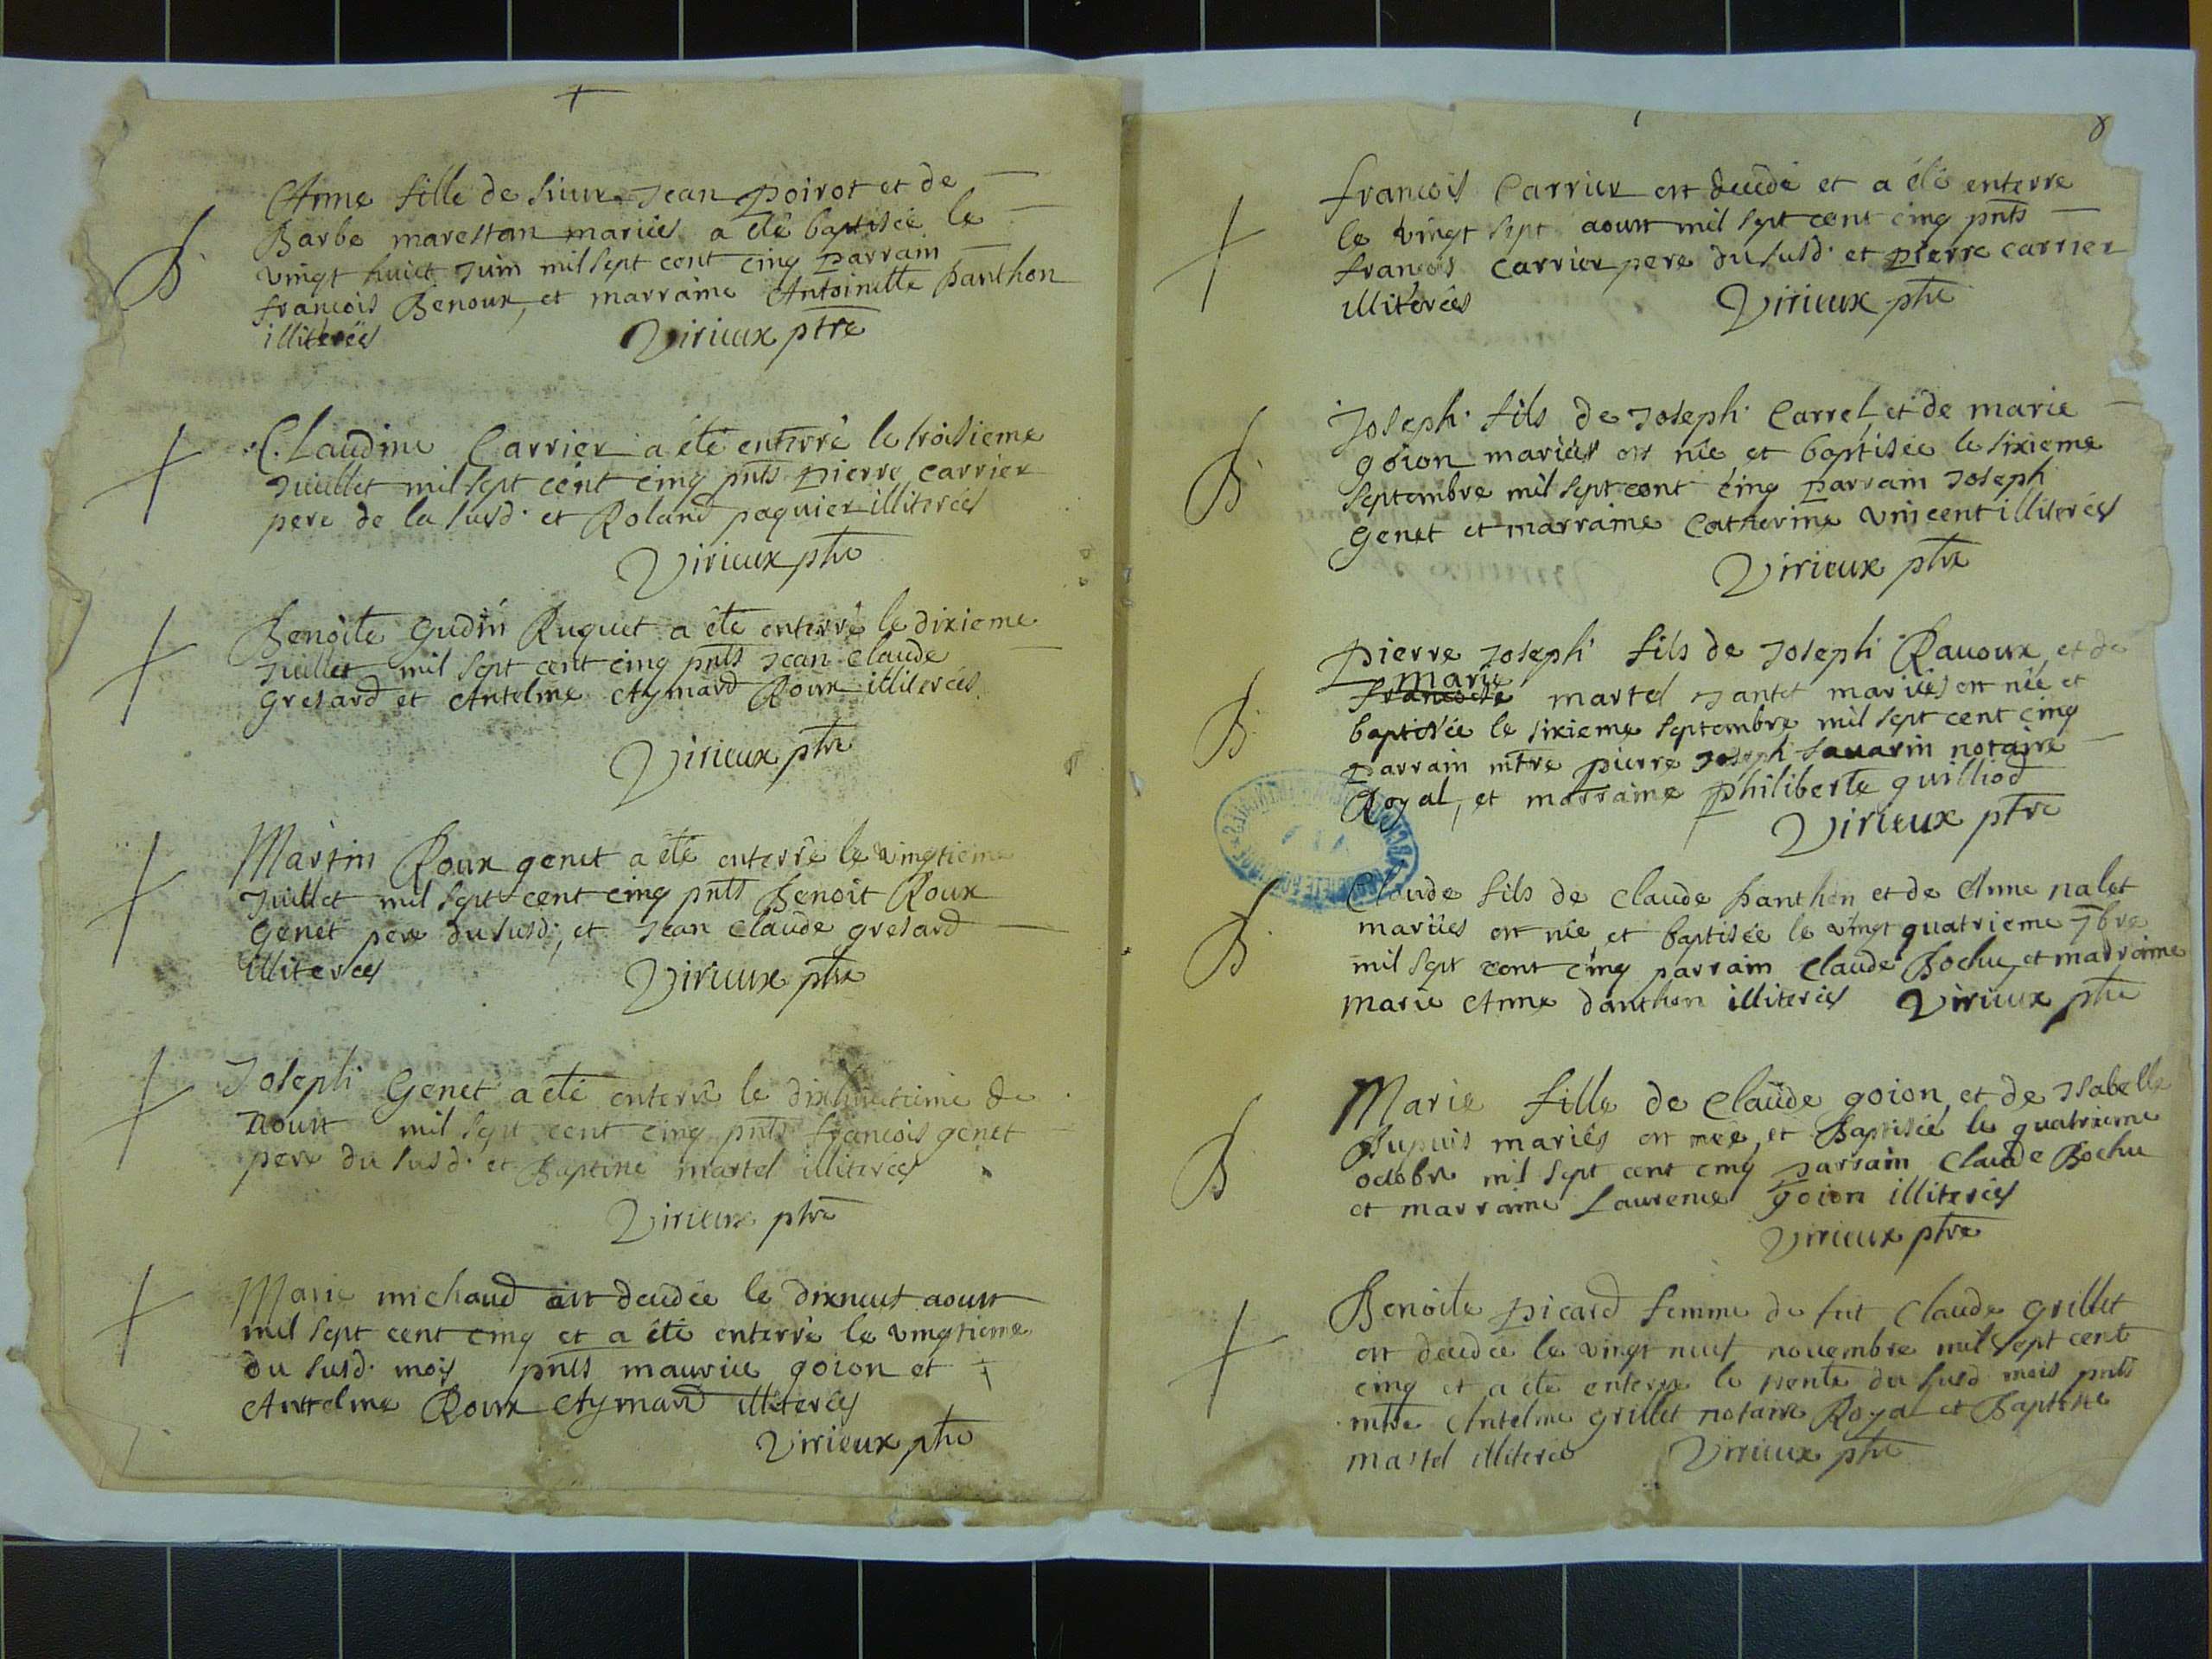 Anne fille de sieur Jean poirot et de
Barbe marestan mariées a été baptisée le
vingt huict Juin mil sept cent cinq parrain
francois Benoux, et marraine Antoinette Danthon
illiterées
Virieux ptre
B
Claudine Carrier a été enterré le troisieme
Juillet mil sept cent cinq pnts pierre carrier
pere de la susd. et Roland paquier illiterées
Virieux ptre
Benoite gudin Ruquet a été enterré le dixieme
Juillet mil sept cent cinq pnts Jean claude
gresard et Antelme Aymard Roux illiterées
Virieux ptre
Martin Roux genet a été enterré le vingtieme
Juillet mil sept cent cinq pnts Benoit Roux
genet pere du susd. et Jean claude gresard
illiterées
Virieux ptre
Joseph Genet a été enterré le dixhuictieme de
Aoust mil sept cent cinq pnts francois genet
pere du susd. et Baptiste martel illiterées
Virieux ptre
Marie michaud est decedée le dixneuf aoust
mil sept cent cinq et a été enterré le vingtieme
du susd. mois pnts maurice goion et
Antelme Roux Aymard illiterées
Virieux ptre
8
francois Carrier est decedé et a été enterré
le vingt sept aoust mil sept cent cinq pnts
francois carrier pere du susd. et pierre carrier
illiterées
Virieux ptre
Joseph fils de Joseph Carrel, et de marie
goion mariées est née et baptisée le sixieme
septembre mil sept cent cinq parrain Joseph
genet et marraine Catherine vincent illiterées
Virieux ptre
B
pierre Joseph fils de Joseph Rauoux, et de
marie
francoise martel Jantet mariées est née et
baptisée le sixieme septembre mil sept cent cinq
parrain mtre pierre Joseph sauarin notaire
Royal, et marraine philiberte guilliod
Virieux ptre
B
Claude fils de claude Danthon et de Anne nalet
mariées est née, et baptisée le vingt quatrieme 7bre
mil sept cent cinq parrain claude Bochu, et marraine
marie Anne danthon illiterées Virieux ptre
B
Marie fille de claude goion, et de Isabelle
Dupuis mariés est née, et Baptisée le quatrieme
octobre mil sept cent cinq parrain claude Bochu
et marraine Laurence goion illiterées
Virieux ptre
B
Benoite picard femme de fut claude grillet
est decedée le vingt neuf nouembre mil sept cent
cinq et a été enterré le trente du susd mois pnts
mtre Antelme grillet notaire Royal et Baptiste
martel illiterées Virieux ptre